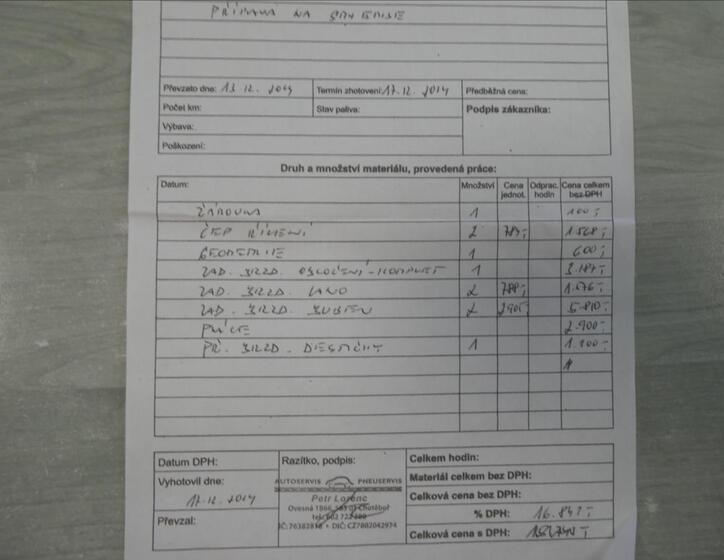 PŘÍPRAVA NA
Převzato dne: 13.12. 2014 Termín zhotovení: 17.12. 2014 Předběžná cena:
Počet km: Stav paliva: Podpis zákazníka:
Výbava:
Poškození:
Druh a množství materiálu, provedená práce:
Datum: Množství Cena jednot. Odprac. hodin Cena celkem bez DPH
ŽÁROVKA 1 100,-
ČEP ŘÍZENÍ 2 784,- 1.568,-
GEOMETRIE 1 600,-
ZAD. BRZD. 1
ZAD. BRZD. LANO 2 788,- 1.576,-
ZAD. BRZD. BUBEN 2 2905,- 5.810,-
PRÁCE 2.900,-
PŘ. BRZD. DESTIČKY 1
Datum DPH: Razítko, podpis: Celkem hodin:
Vyhotovil dne: AUTOSERVIS PNEUSERVIS Materiál celkem bez DPH:
17.12. 2014 Petr Lorenc Celková cena bez DPH:
Ovesná 1866, Chotěboř % DPH: 16.842,-
Převzal: DIČ: CZ7802042974 Celková cena s DPH: